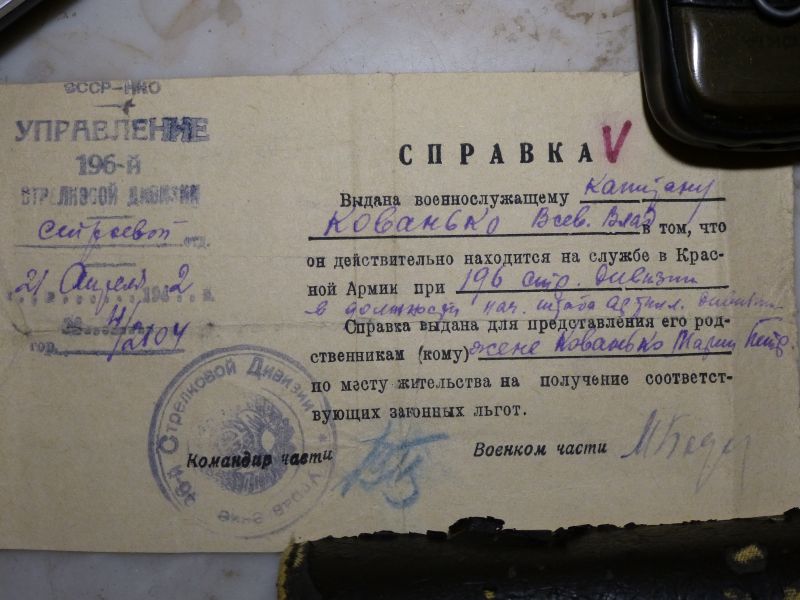 СССР-НКО
УПРАВЛЕНИЕ
196-й
СТРЕЛКОВОЙ ДИВИЗИИ
строевой отд.
21 Апреля 1942 г.
№ 4/2104
гор.
СПРАВКА V
Выдана военнослужащему капитану
Кованько Всев. Влад в том, что
он действительно находится на службе в Крас-
ной Армии при 196 стр. дивизии
в должности нач. штаба артил. дивизии
Справка выдана для представления его род-
ственникам (кому) жене Кованько Марии Петр.
по месту жительства на получение соответст-
вующих законных льгот.
Командир части
Военком части
196-й Стрелковой Дивизии * Управление